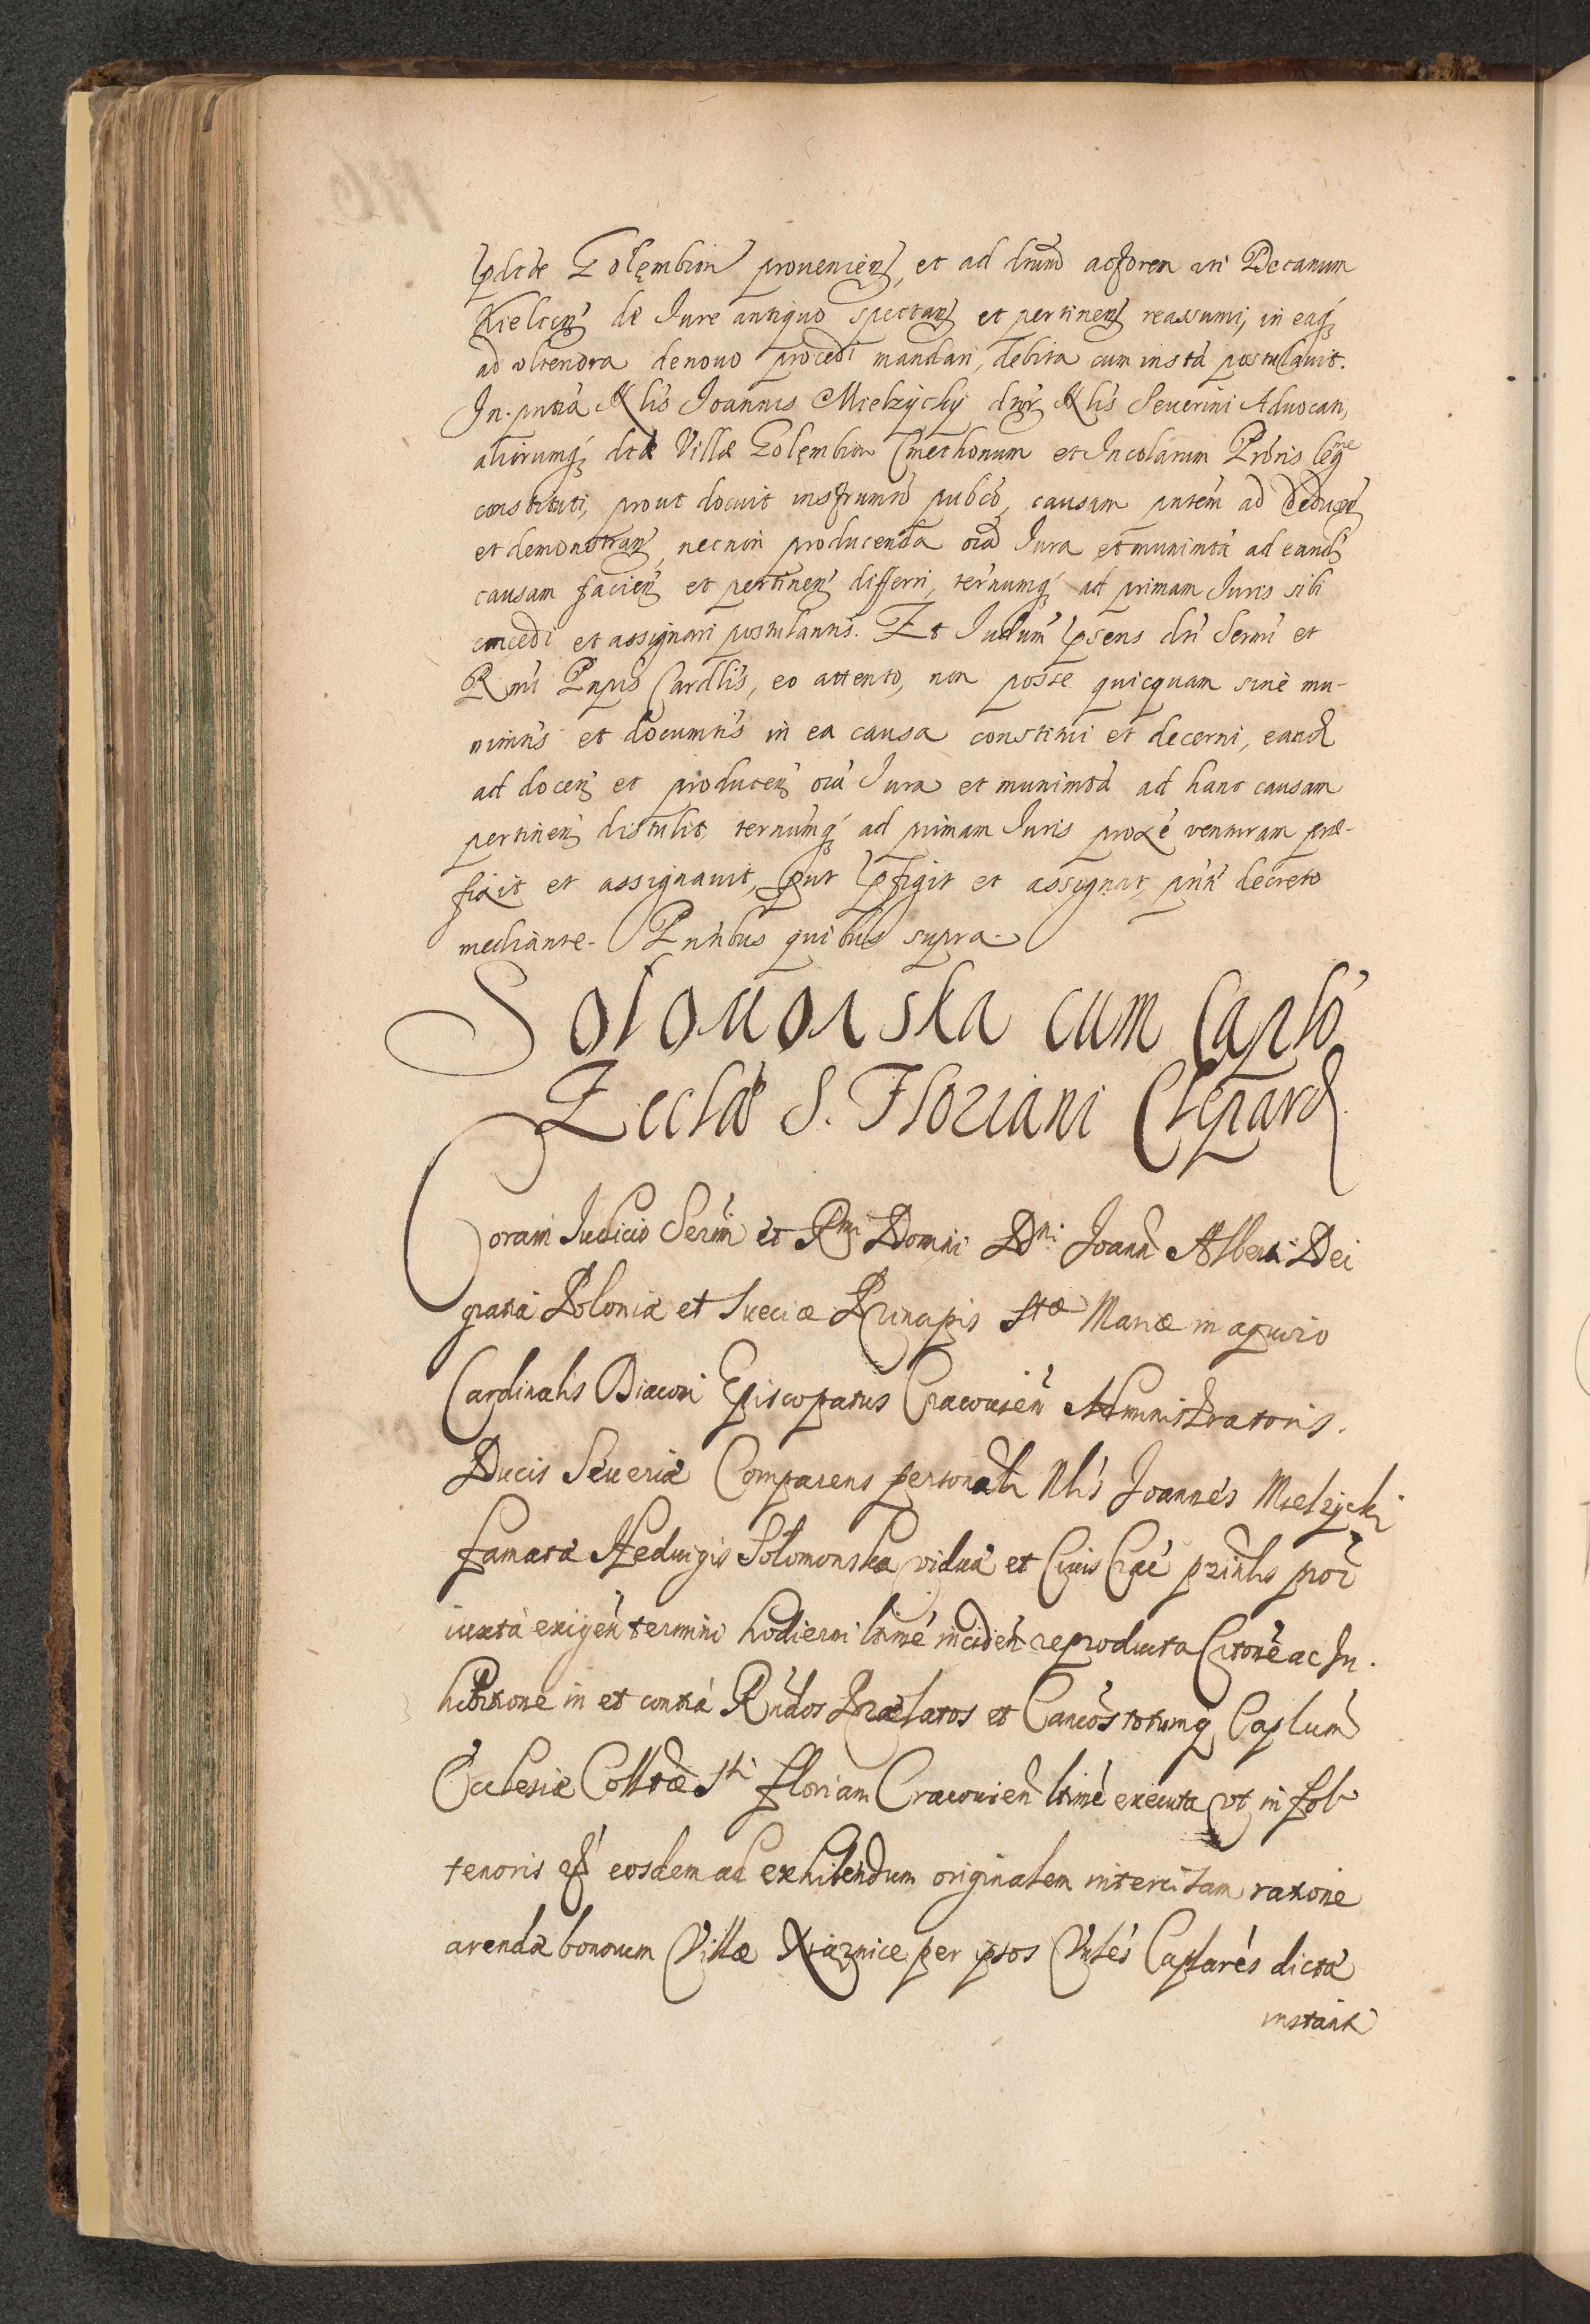 pdtæ Golęmbion provenien, et ad dictum actorem uti Decanum
Kielcen de Iure antiquo spectan et pertinen reassumi, in eaq
ad ulteriora denovo procedi mandari, debita cum insta postulavit.
In pntia Nlis Joannis Mielzycky Nlis Severini Advocati,
aliorumq dtæ Villæ Golęmbion Cmethonum et Incolarum Prōris legme
constituti, prout docuit instrumto pubco, causam pntem ad deducen
et demonstran, necnon producenda oīa Iura et munimta ad eand
causam facien et pertinen differri, ternumq ad primam Iuris sibi
concedi et assignari postulantis. Et Iudium psens dti Sermi et
Rmi Pnpis Cardlis, eo attento, non posse quicquam sine mu-
nimtis et documtis in ea causa constitui et decerni, eand
ad docen et producen oīa Iura et munimta ad hanc causam
pertinen distulit, ternumq ad primam Iuris proxe venturam præ-
fixit et assignavit, put pfigit et assignat, pnti decreto
mediante. Pntibus quibus supra.
Solomonska cum Caplo
Ecclæ S. Floriani Clepard
Coram Iudicio Sermi et Rmi Domni Dni Joann Alberti Dei
gratia Poloniæ et Sueciæ Principis Stæ Mariæ in aquiro
Cardinalis Diaconi Episcopatus Cracovien Administratoris.
Ducis Severiæ Comparens personalr Nlis Joannes Mielzycki
famatæ Hedvigis Solomonska viduæ et Civis Crac prinlis por
iuxta exigen termini hodierni ltime inciden reproducta Citone ac In-
hibitione in et contra Rndos Prælatos et Cancos totumq Caplum
Ecclesiæ Colltæ Sti Floriani Cracovien ltime executa ut in fol
tenoris eosdem ad exhibendum originalem intercisam ratione
arendæ bonorum Villæ Xiąznice per ipsos Vnles Caplares dictæ
instanti